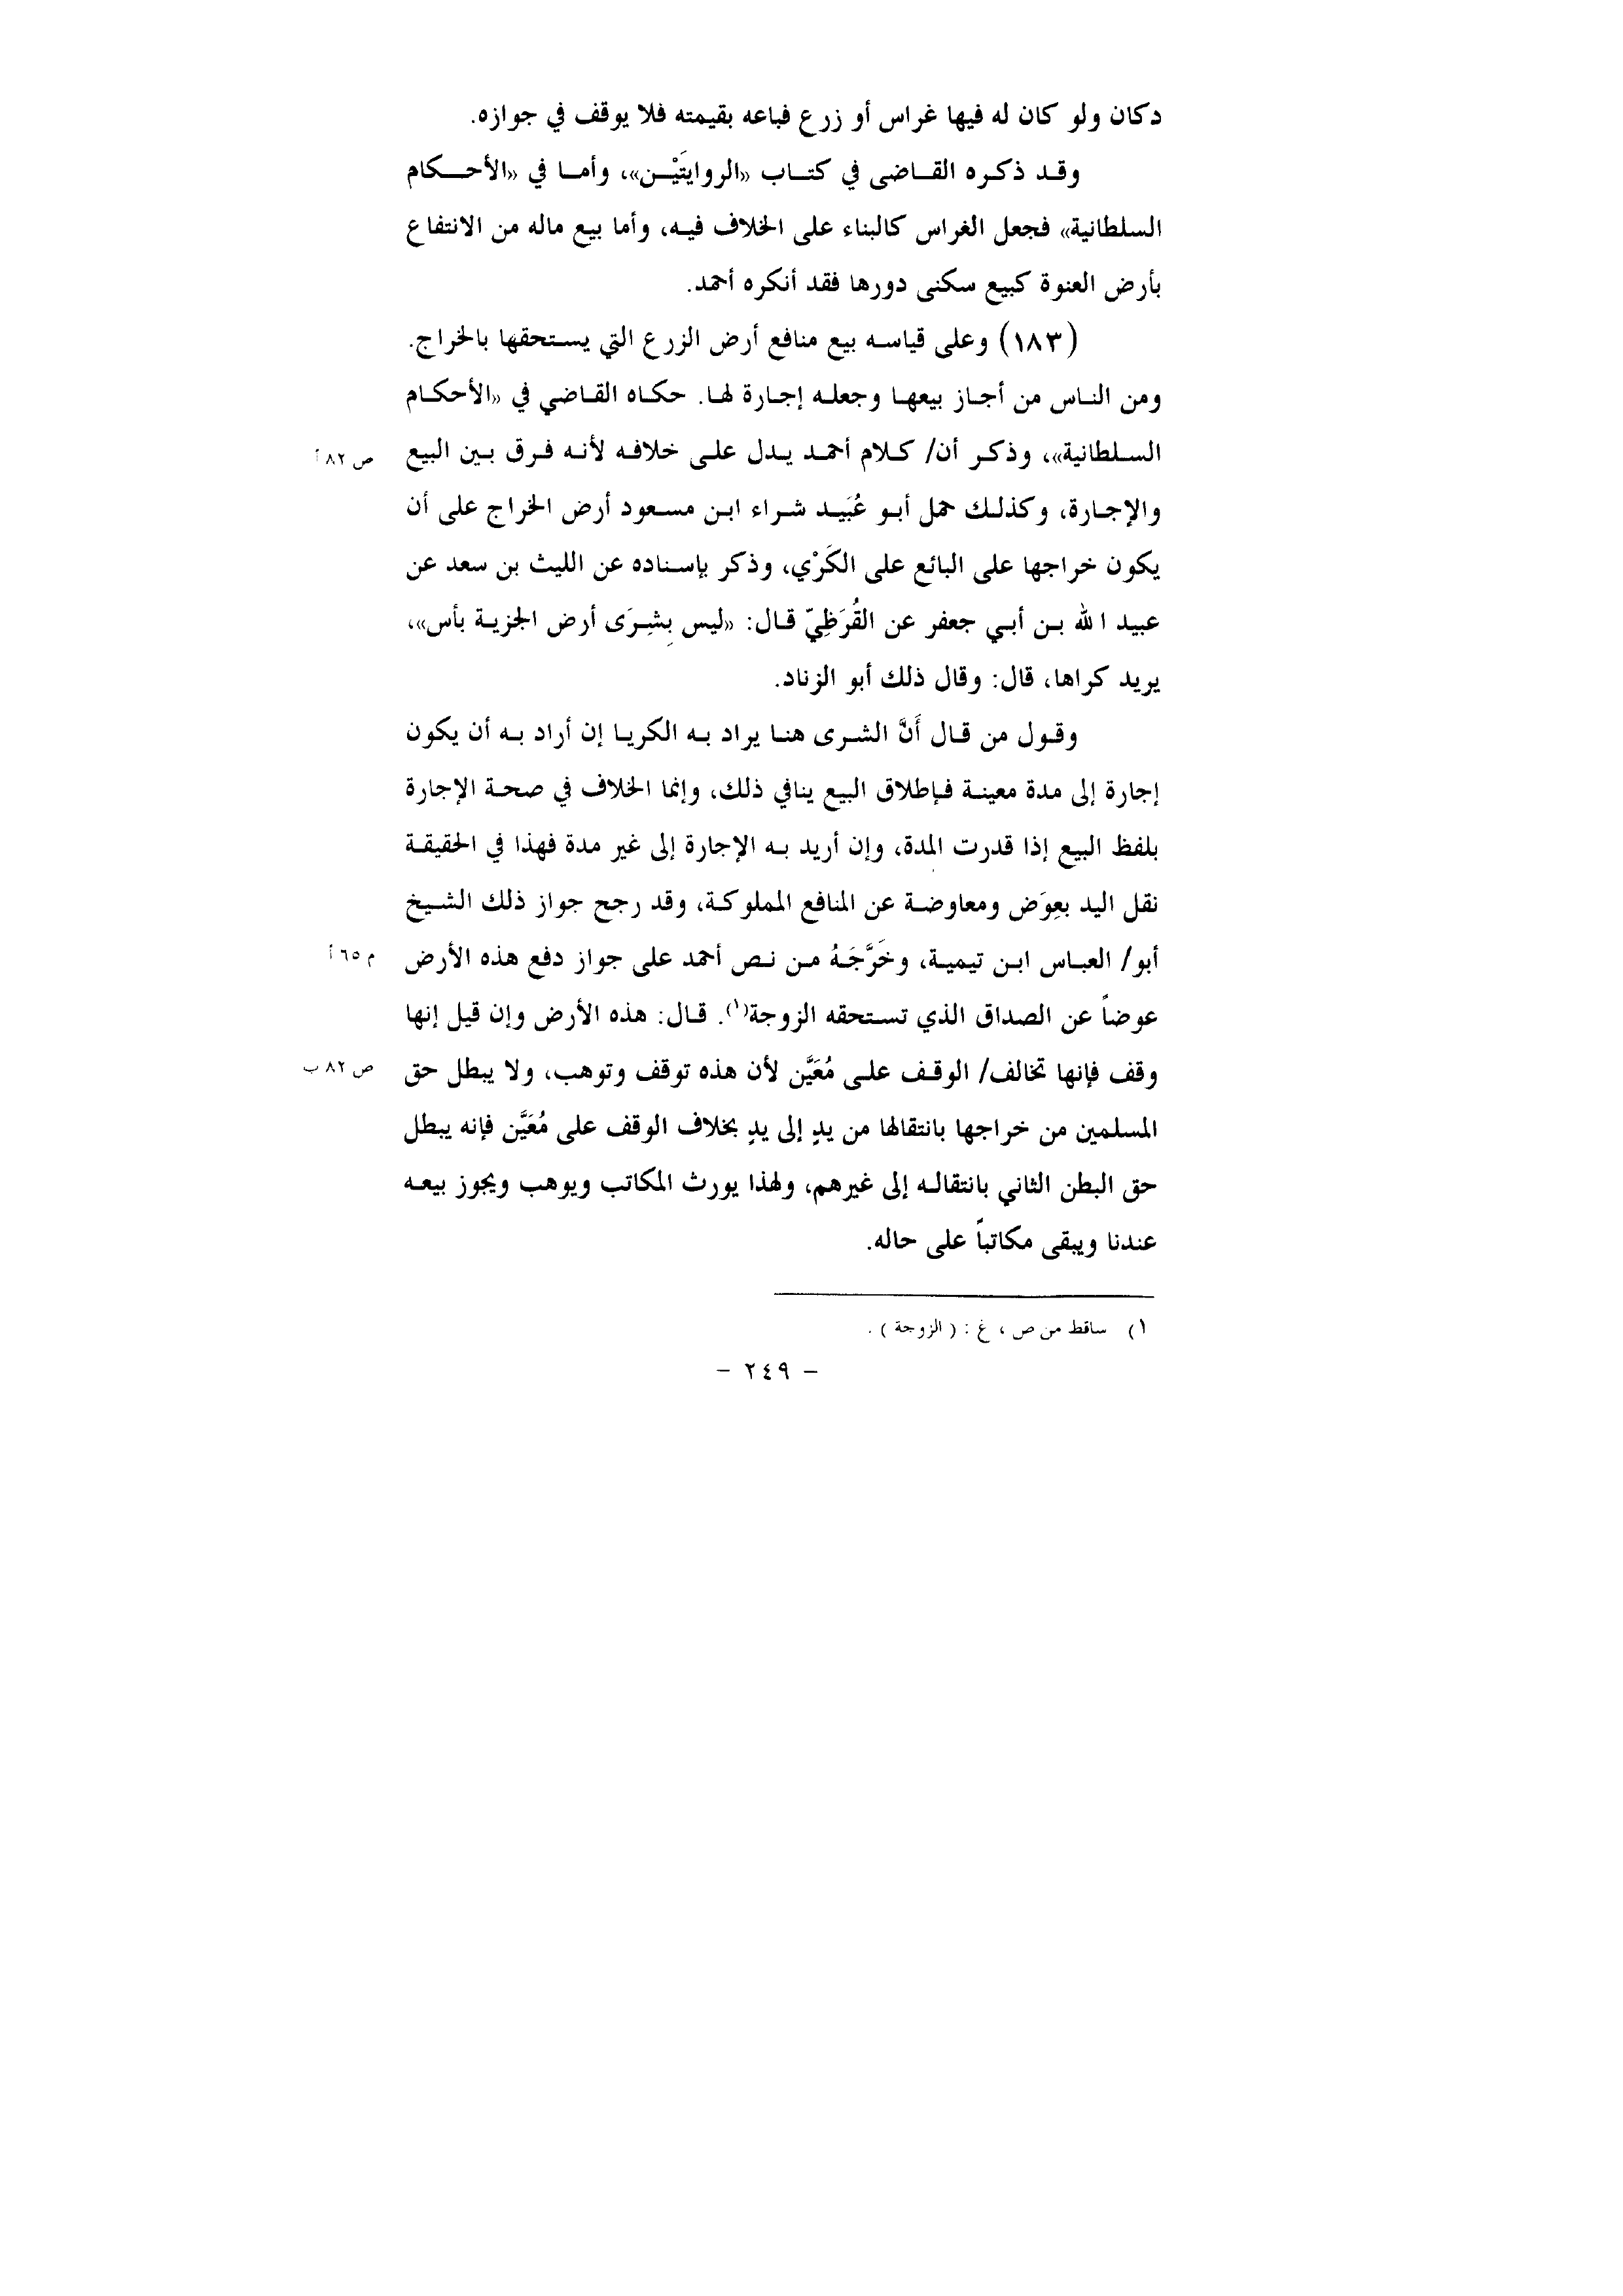 دكان ولو كان له فيها غراس أو زرع فباعه بقيمته فلا يوقف في جوازه.
وقد ذكره القاضى في كتاب «الروايتَيْن»، وأما في «الأحكام
السلطانية» فجعل الغراس كالبناء على الخلاف فيه، وأما بيع ماله من الانتفاع
بأرض العنوة كبيع سكنى دورها فقد أنكره أحمد.
(١٨٣) وعلى قياسه بيع منافع أرض الزرع التي يستحقها بالخراج.
ومن الناس من أجاز بيعها وجعله إجارة لها. حكاه القاضي في «الأحكام
السلطانية»، وذكر أن/ كلام أحمد يدل على خلافه لأنه فرق بين البيع
ص ٨٢ أ
والإجارة، وكذلك حمل أبو عُبَيد شراء ابن مسعود أرض الخراج على أن
يكون خراجها على البائع على الكَرْي، وذكر بإسناده عن الليث بن سعد عن
عبيد الله بن أبي جعفر عن القُرَظِيّ قال: «ليس بِشِرَى أرض الجزية بأس»،
يريد كراها، قال: وقال ذلك أبو الزناد.
وقول من قال أَنَّ الشرى هنا يراد به الكريا إن أراد به أن يكون
إجارة إلى مدة معينة فإطلاق البيع ينافي ذلك، وإنما الخلاف في صحة الإجارة
بلفظ البيع إذا قدرت المدة، وإن أريد به الإجارة إلى غير مدة فهذا في الحقيقة
نقل اليد بعِوَض ومعاوضة عن المنافع المملوكة، وقد رجح جواز ذلك الشيخ
أبو/ العباس ابن تيمية، وخَرَّجَهُ من نص أحمد على جواز دفع هذه الأرض
م ٦٥ أ
عوضاً عن الصداق الذي تستحقه الزوجة(١). قال: هذه الأرض وإن قيل إنها
وقف فإنها تخالف/ الوقف على مُعَيَّن لأن هذه توقف وتوهب، ولا يبطل حق
ص ٨٢ ب
المسلمين من خراجها بانتقالها من يدٍ إلى يدٍ بخلاف الوقف على مُعَيَّن فإنه يبطل
حق البطن الثاني بانتقاله إلى غيرهم، ولهذا يورث المكاتب ويوهب ويجوز بيعه
عندنا ويبقى مكاتباً على حاله.
١) ساقط من ص ، غ : ( الزوجة ) .
- ٢٤٩ -